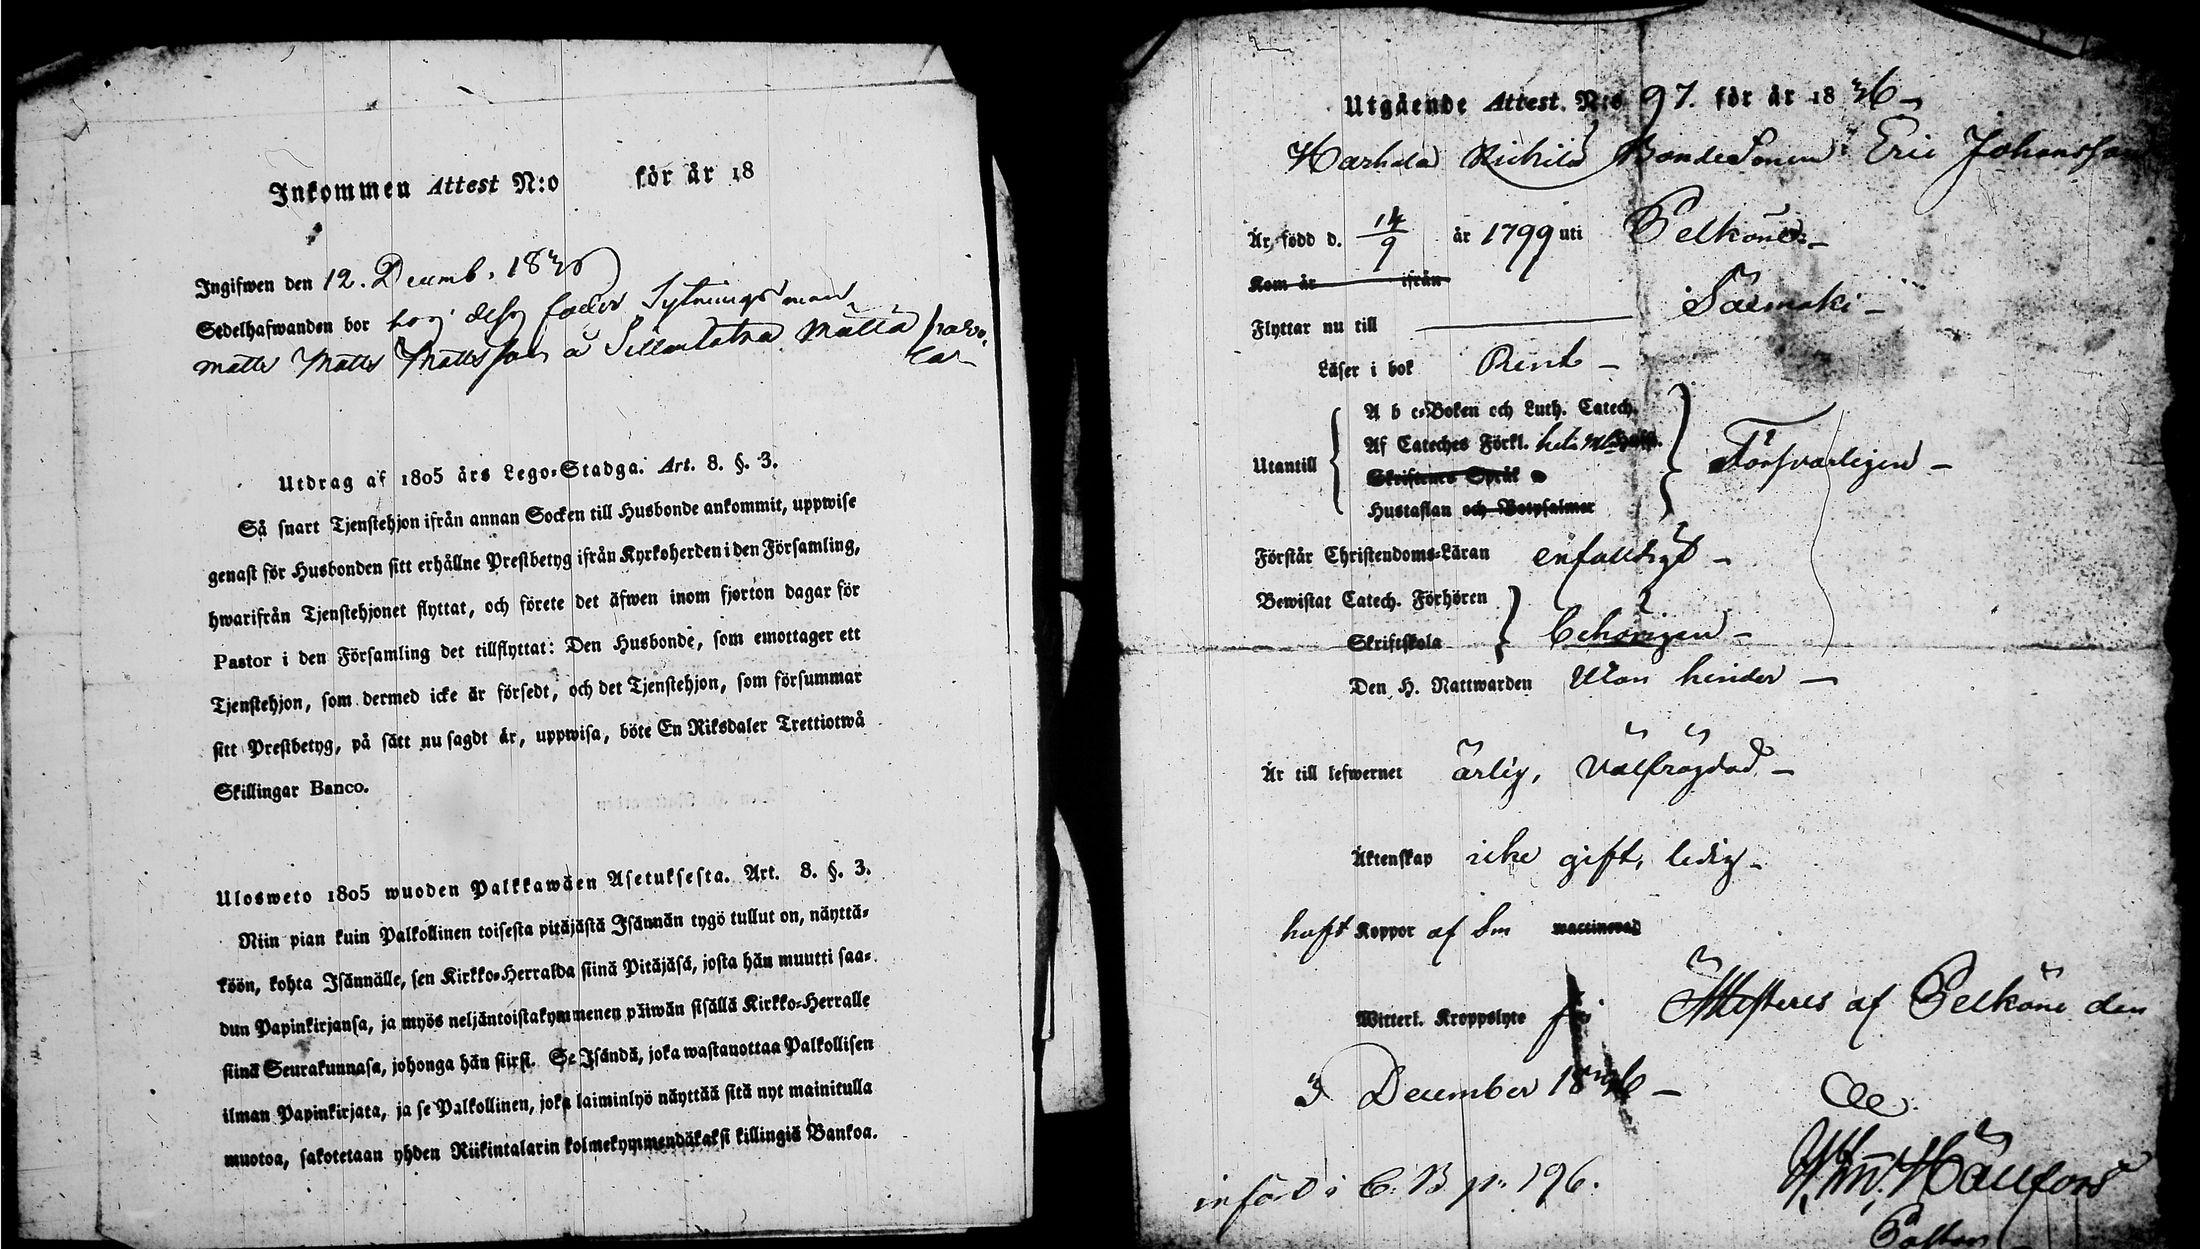 Inkommen Attest N:o för år 18
Ingifwen den 12. Decemb. 1836
Sedelhafwanden bor hos dess fader Sytningsman
Matts Mattsson å Sillantaka
Utdrag af 1805 års Lego-Stadga. Art. 8. §. 3.
Så snart Tjenstehjon ifrån annan Socken till Husbonde ankommit, uppwise
genast för Husbonden sitt erhållne Prestbetyg ifrån Kyrkoherden i den Församling,
hwarifrån Tjenstehjonet flyttat, och förete det äfwen inom fjorton dagar för
Pastor i den Församling det tillflyttat: Den Husbonde, som emottager ett
Tjenstehjon, som dermed icke är försedt, och det Tjenstehjon, som försummar
sitt Prestbetyg, på sätt nu sagdt är, uppwisa, böte En Riksdaler Trettiotwå
Skillingar Banco.
Ulosweto 1805 wuoden Palkkawäen Asetuksesta. Art. 8. §. 3.
Niin pian kuin Palkollinen toisesta pitäjästä Isännän tygö tullut on, näyttä-
köön, kohta Isännälle, sen Kirkko-Herralda siinä Pitäjäsä, josta hän muutti saa-
dun Papinkirjansa, ja myös neljäntoistakymmenen päiwän sisällä Kirkko-Herralle
siinä Seurakunnasa, johonga hän siirsi. Se Isändä, joka wastanottaa Palkollisen
ilman Papinkirjata, ja se Palkollinen, joka laiminlyö näyttää sitä nyt mainitulla
muotoa, sakotetaan yhden Riikintalarin kolmekymmendäkaksi killingiä Bankoa.
Utgående Attest. N:o 97. för år 1836
Harhala Rickilä Bondesonen Eric Johansson
Är född d. 14/9 år 1799 uti Pelkäne
Kom år ifrån
Flyttar nu till Säxmäki
Läser i bok Rent
A b c-Boken och Luth. Catech.
Af Cateches Förkl.
Utantill Försvarligen
Skriftenes Språk
Hustaflan och Botpsalmer
Förstår Christendoms-Läran enfaldigt
Bewistat Catech. Förhören
Skriftskola behörigen
Den H. Nattwarden Utan hinder
Är till lefwernet ärlig, välfrägdad
Äktenskap icke gift, ledig
haft Koppor af Sm waccinerad
Witterl. Kroppslyte Attesteres af Pelkäne den
3 December 1836
införd i C. B. p. 196.
Pastor